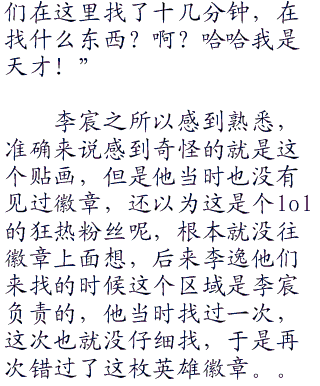 们在这里找了十几分钟，在
找什么东西？啊？哈哈我是
天才！”
李宸之所以感到熟悉，
准确来说感到奇怪的就是这
个贴画，但是他当时也没有
见过徽章，还以为这是个lol
的狂热粉丝呢，根本就没往
徽章上面想，后来李逸他们
来找的时候这个区域是李宸
负责的，他当时找过一次，
这次也就没仔细找，于是再
次错过了这枚英雄徽章。。